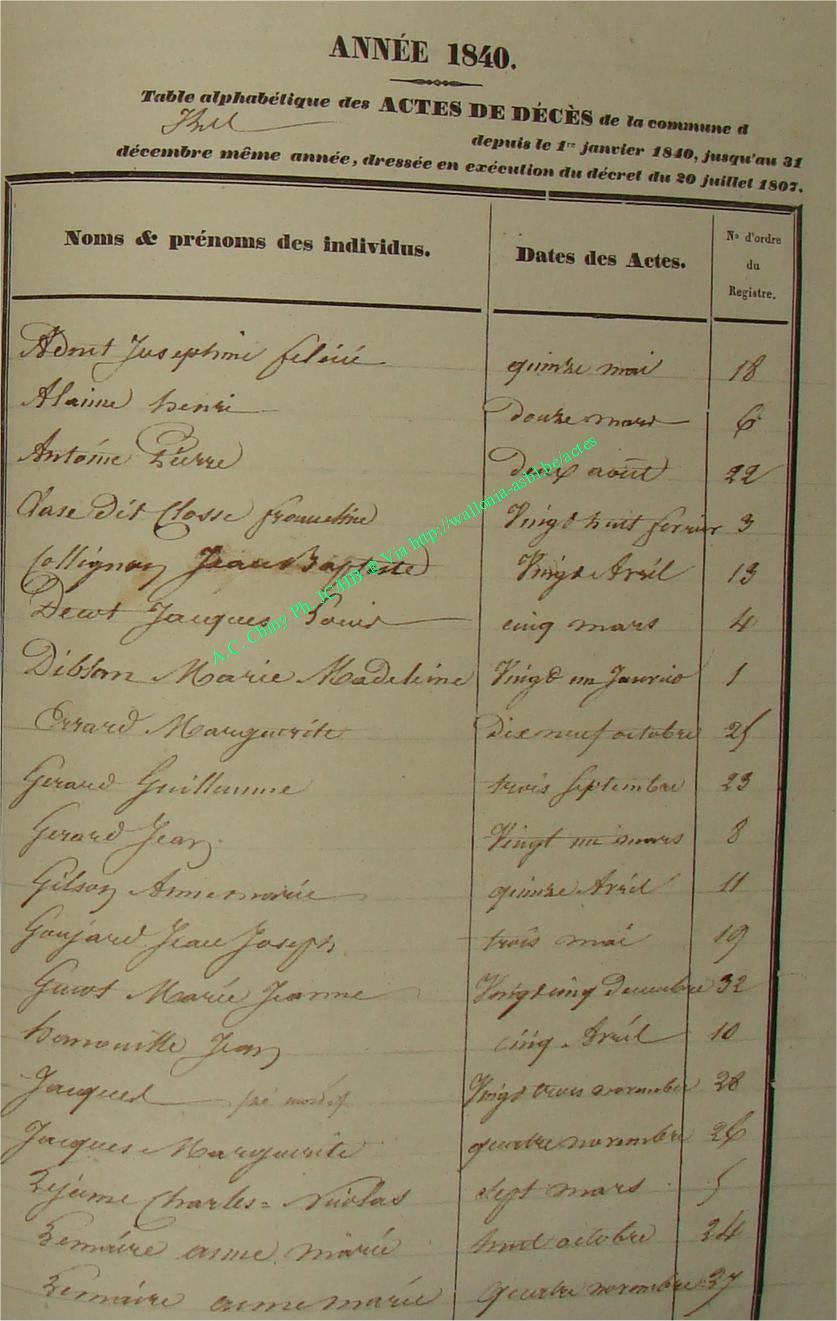 ANNÉE 1840.
Table alphabétique des ACTES DE DÉCÈS de la commune d
depuis le 1er janvier 1840, jusqu'au 31
décembre même année, dressée en exécution du décret du 20 juillet 1807.
Noms & prénoms des individus. Dates des Actes. No d'ordre du Registre.
Adnet Josephine felicié quinze mai 18
Alaime henri Douze mars 6
Antoine Pierre Deux août 22
Clase Dit Closse francoline Vingt huit fevrier 3
Collignon Jean Baptiste Vingt Avril 13
Decot Jacques Louis cinq mars 4
Dibson Marie Madeleine Vingt un Janvier 1
Errard Marguerite Dix neuf octobre 25
Gerard Guillaume trois septembre 23
Gerard Jean Vingt un mars 8
Gilson Anne marie quinze Avril 11
Goujard Jean Joseph trois mai 19
Guiot Marie Jeanne Vingt cinq decembre 32
hanouille Jean cinq Avril 10
Jacques Vingt trois novembre 28
Jacques Marguerite quatre novembre 26
Lejeune Charles = Nicolas sept mars 5
Lemaire anne marie huit octobre 24
Lemaire anne marie quatre novembre 27
A.C. Chiny Ph. JCHB © Via http://wallonia-asbl.be/actes